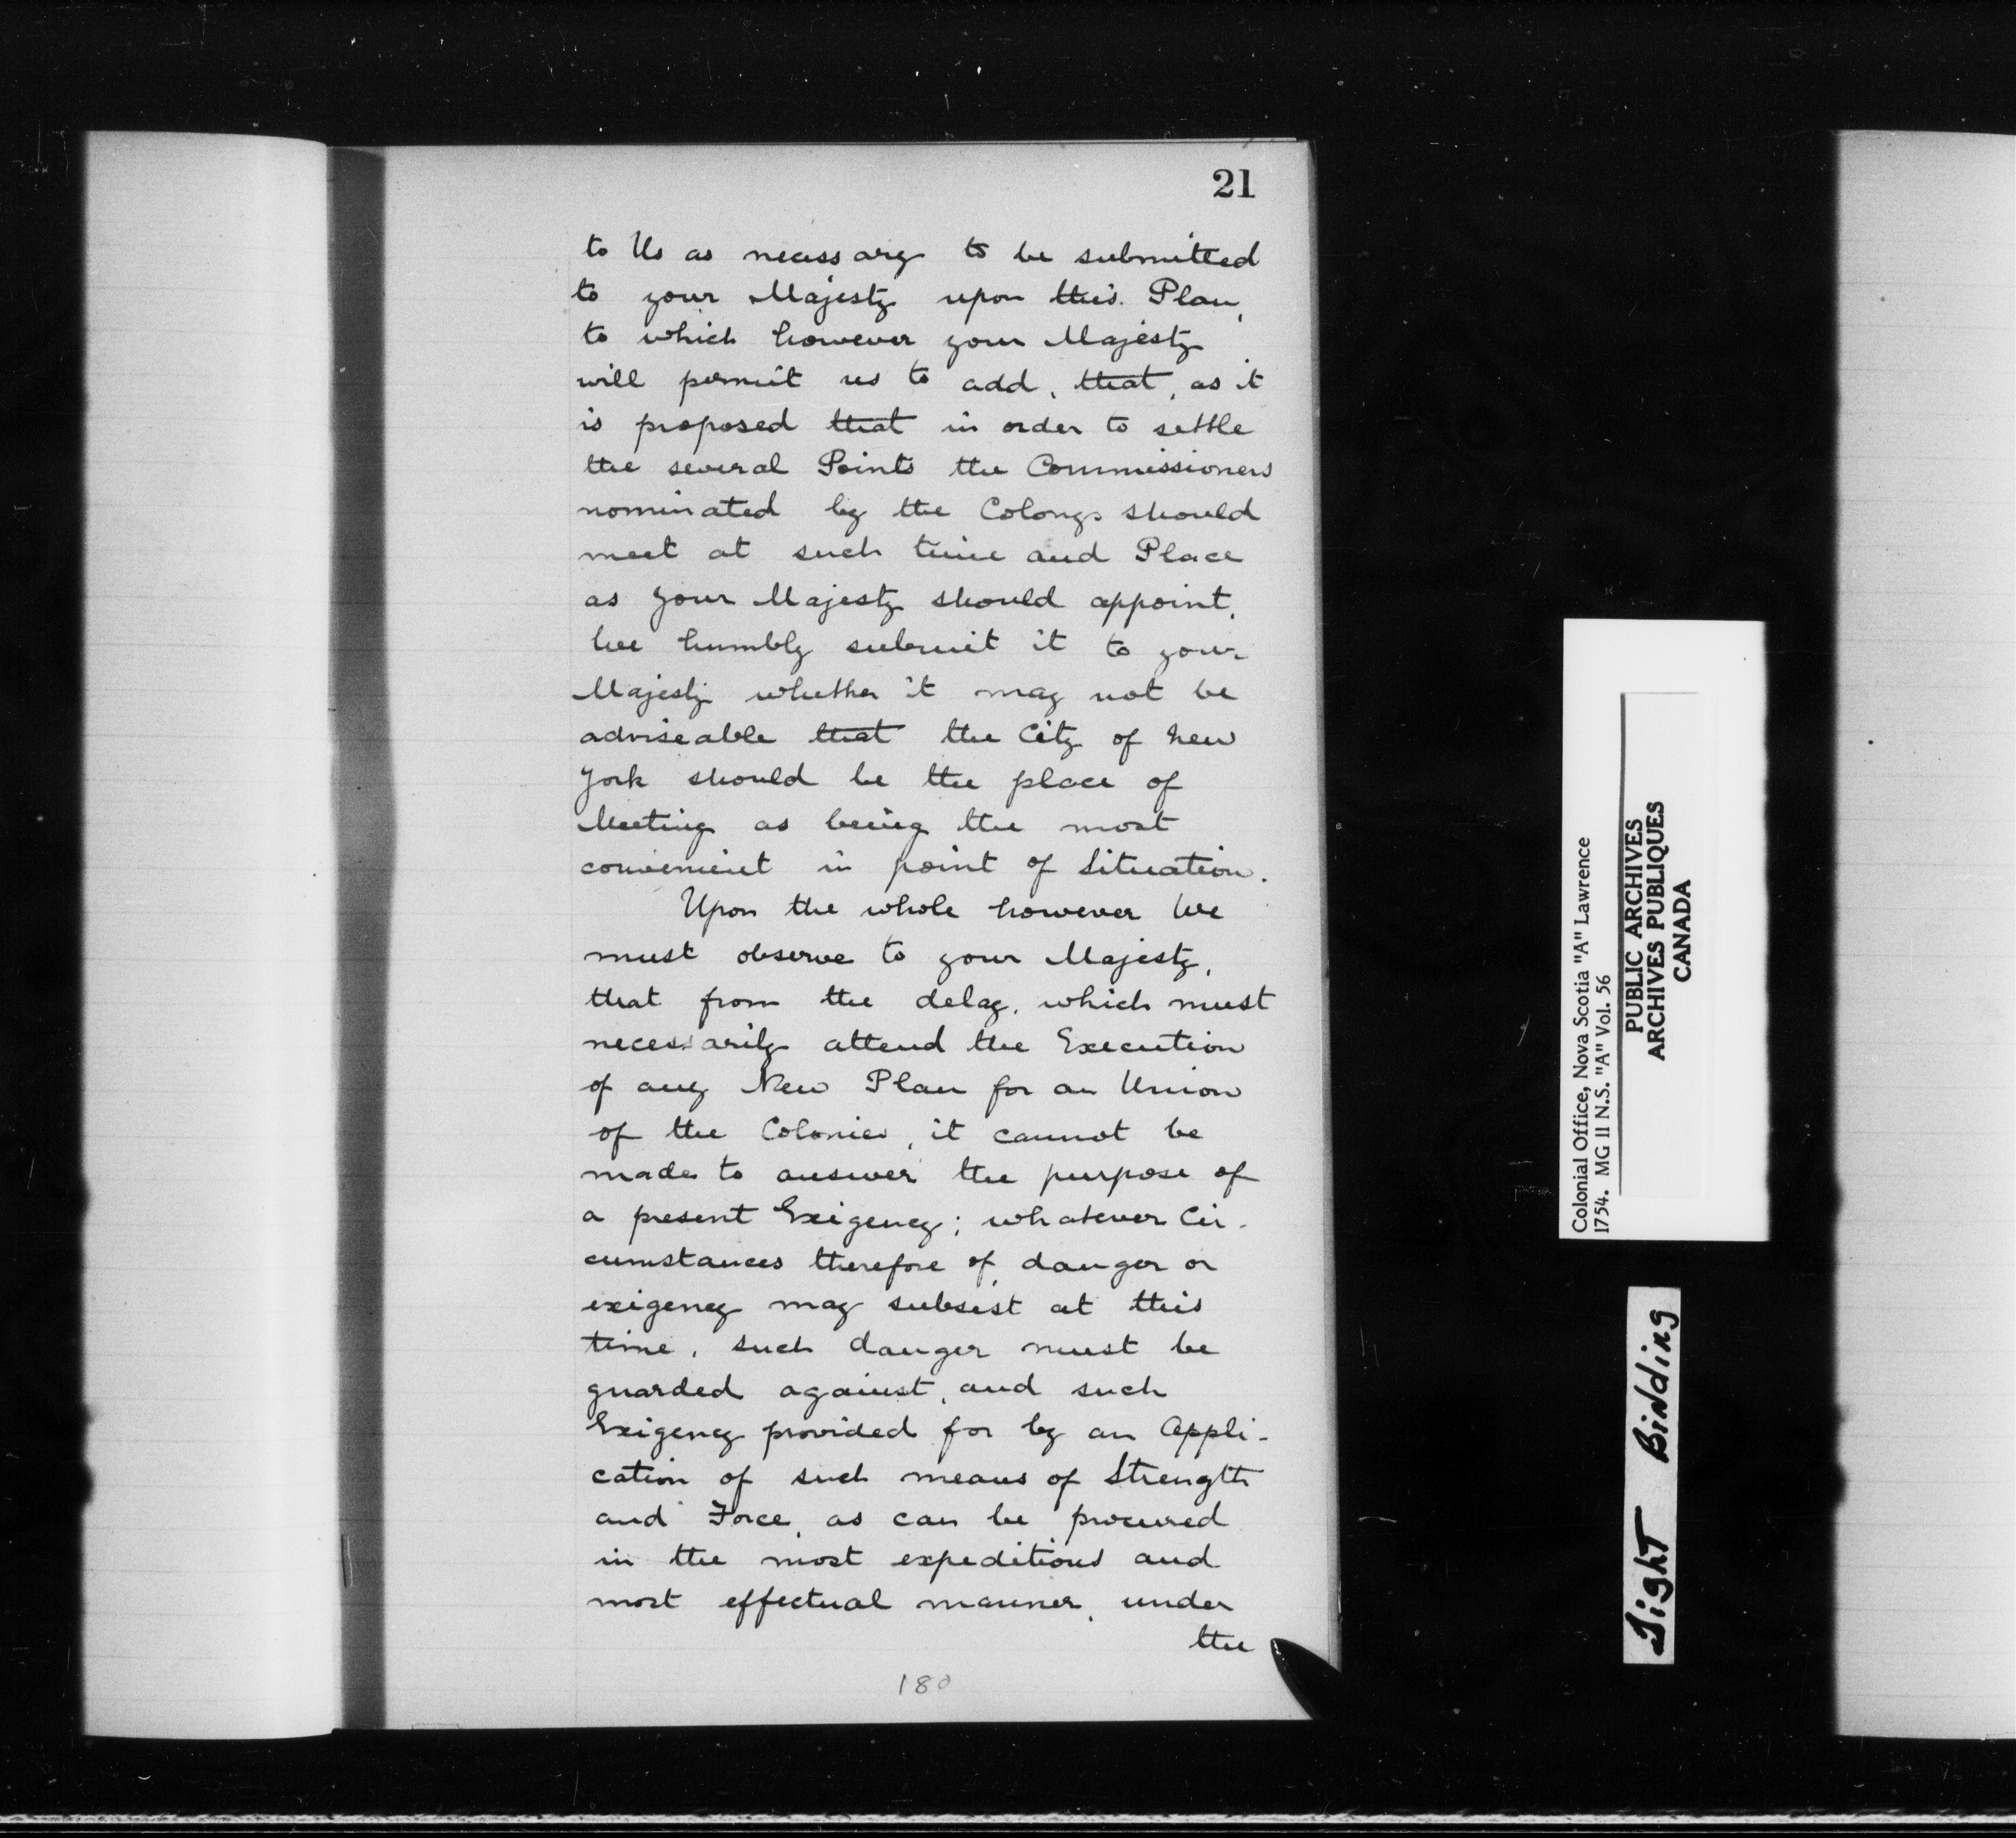 21
to Us as necessary to be submitted
to your Majesty upon this Plan,
to which however your Majesty
will permit us to add, that, as it
is proposed that in order to settle
the several Points the Commissioners
nominated by the Colonys should
meet at such time and Place
as your Majesty should appoint,
We humbly submit it to your
Majesty whether it may not be
adviseable that the City of New
York should be the place of
Meeting as being the most
convenient in point of Situation.
Upon the whole however We
must observe to your Majesty,
that from the delay, which must
necessarily attend the Execution
of any New Plan for an Union
of the Colonies, it cannot be
made to answer the purpose of
a present Exigency; whatever Cir-
cumstances therefore of danger or
exigency may subsist at this
time, such danger must be
guarded against, and such
Exigency provided for by an Appli-
cation of such means of Strength
and Force, as can be procured
in the most expeditious and
most effectual manner, under
the
180
Colonial Office, Nova Scotia "A" Lawrence
1754. MG 11 N.S. "A" Vol. 56
PUBLIC ARCHIVES
ARCHIVES PUBLIQUES
CANADA
Tight Binding